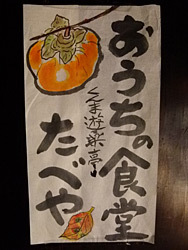 おうちの食堂
くま遊楽亭
たべや